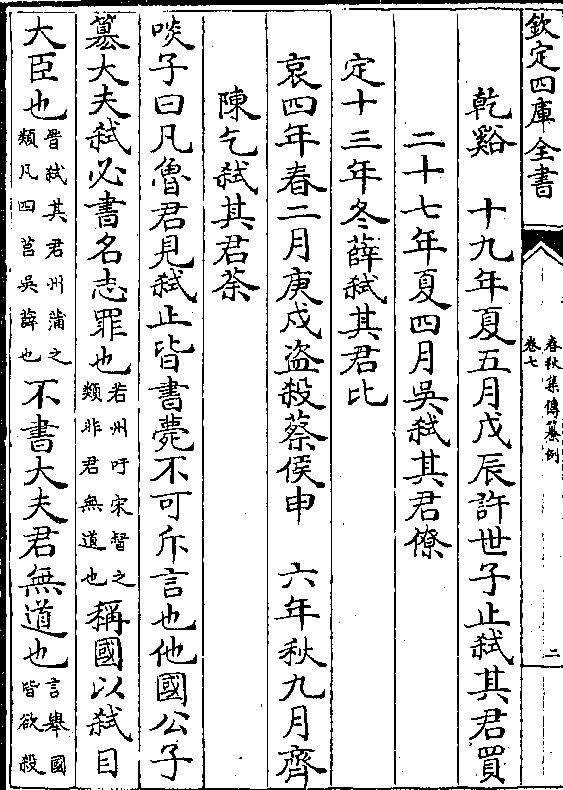 欽定四庫全書
春秋集傳纂例
卷七
二
乾谿　十九年夏五月戊辰許世子止弑其君買
二十七年夏四月吳弑其君僚
定十三年冬薛弑其君比
哀四年春二月庚戍盗殺蔡侯申　六年秋九月齊
陳乞弑其君荼
啖子曰凡魯君見弑止皆書薨不可斥言也他國公子
簒大夫弑必書名志罪也若州吁宋督之類非君無道也稱國以弑目
大臣也晋弑其君州蒲之類凡四莒吳薛也不書大夫君無道也言舉國皆欲殺